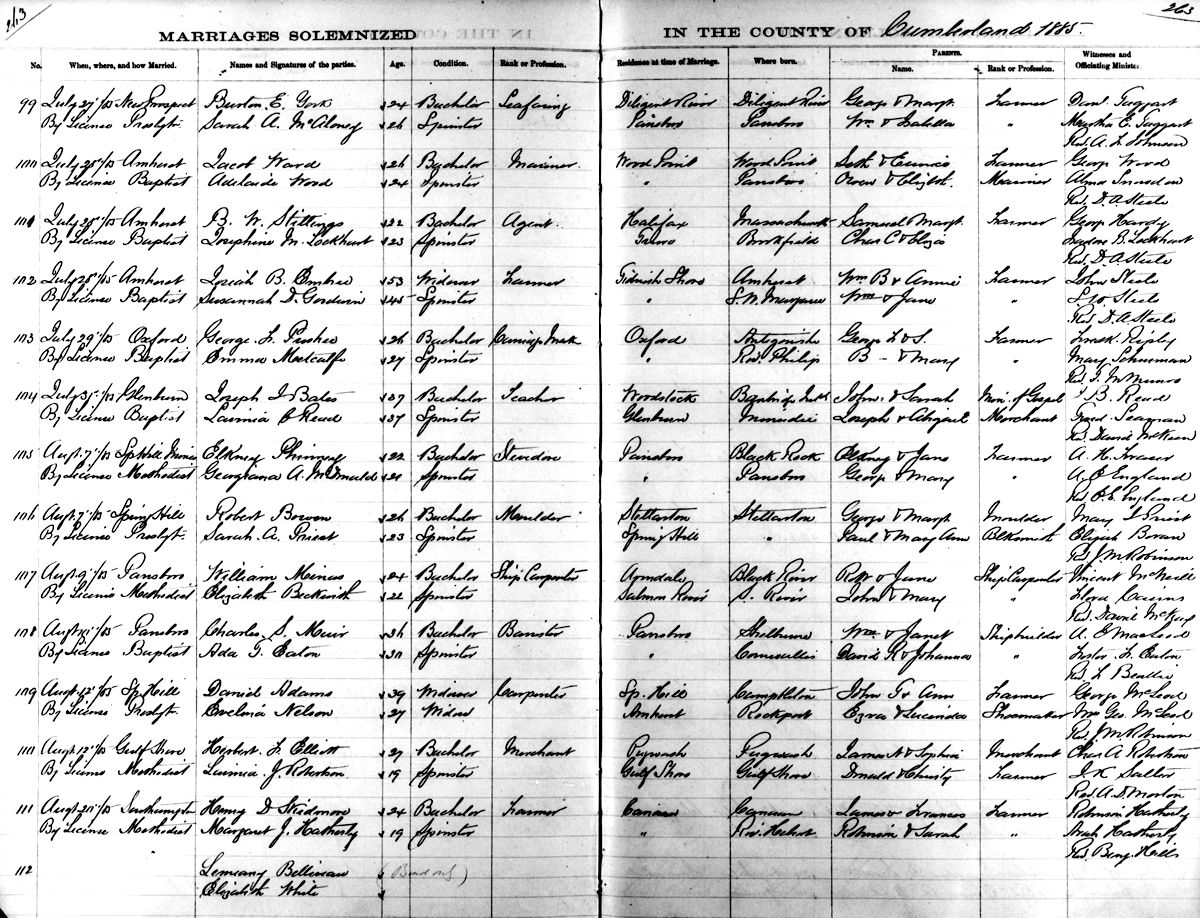 263
263
MARRIAGES SOLEMNIZED IN THE COUNTY OF Cumberland 1885.
No. When, where, and how Married. Names and Signatures of the parties. Age. Condition. Rank or Profession. Residence at time of Marriage. Where born. PARENTS. Name. Rank or Profession. Witnesses and Officiating Minister.
99 July 27/85 New Prospect Burton E. York 24 Bachelor Seafaring Diligent River Diligent River George & Margt. Farmer Danl. Taggart
By License Presbyt. Sarah A. McAloney 26 Spinster Parrsboro Parrsboro Wm & Isabella " Martha E. Taggart
Rev. A. L. Johnson
100 July 25/85 Amherst Jacob Ward 26 Bachelor Mariner Wood Point Wood Point Seth & Eunice Farmer George Wood
By License Baptist Adelaide Wood 24 Spinster " Parrsboro & Elizbth. Mariner Alma
Rev. D. A. Steele
101 July 28/85 Amherst B. W. Stillings 22 Bachelor Agent Halifax Samuel & Margt. Farmer George Hardy
By License Baptist Josephine M. Lockhart 23 Spinster Truro Brookfield Chas C & Eliza B. Lockhart
Rev. D. A. Steele
102 July 28/85 Amherst Josiah B. Embree 53 Widower Farmer Tidnish Shore Amherst Wm B & Annie Farmer John Steele
By License Baptist Susannah D. Goodwin 45 Spinster " Wm & Jane " Steele
Rev. D. A. Steele
103 July 29/85 Oxford George L. 26 Bachelor Oxford Antigonish George L & S. Farmer Ripley
By License Baptist Emma Metcalfe 27 Spinster " Riv. Philip B - & Mary " Mary Schurman
Rev.
104 July 31/85 Glenburn Joseph J. Bates 37 Bachelor Teacher Woodstock John & Sarah Min. of Gospel B. Read
By License Baptist Read 37 Spinster Glenburn Minudie Joseph & Abigail Merchant Seaman
Rev. David McKeen
105 Aug. 7/85 Sp Hill Mines Elkney Phinney 22 Bachelor Stevedore Parrsboro Black Rock Elkney & Jane Farmer A. H. Fraser
By License Methodist Georgiana A. McDonald 21 Spinster " Parrsboro George & Mary " A. C. England
Rev. C. E. England
106 Aug. 7/85 Spring Hill Robert Bowen 26 Bachelor Moulder Stellarton Stellarton George & Margt Moulder Mary J. Priest
By License Presbyt. Sarah A. Priest 23 Spinster Spring Hill " Paul & Mary Ann Blksmith Elizabh
Rev. J. M. Robinson
107 Aug. 9/85 Parrsboro William 24 Bachelor Ship Carpenter Black River & Jane Ship Carpenter Vincent McNeill
By License Methodist Elizabeth Beckwith 22 Spinster Salmon River S. River John & Mary " Flora
Rev. David McKay
108 Aug. Parrsboro Charles S. Muir 36 Bachelor Barrister Parrsboro Shelburne Wm & Janet Shipbuilder A. E. Macleod
By License Baptist Ada T. Eaton 30 Spinster " Cornwallis David R & Johanna " Eaton
Rev.
109 Aug. 12/85 Sp. Hill Daniel Adams 39 Widower Carpenter Sp. Hill Campbelton John T & Ann Farmer George McLeod
By License Presbyt. Evelina Nelson 27 Widow Amherst Rockport Ezra & Lucinda Shoemaker Mrs Geo. McLeod
Rev. J. M. Robinson
110 Aug. 12/85 Gulf Shore Herbert L. Elliott 27 Bachelor Merchant Pugwash Pugwash James A & Sophia Merchant Chas A. Robertson
By License Methodist J. Robertson 19 Spinster Gulf Shore Gulf Shore Donald & Christy Farmer J. K.
Rev. A. D. Morton
111 Aug. 20/85 Southampton Henry D. Skidmore 24 Bachelor Farmer Canaan Canaan James & Frances Farmer Robinson Hatherly
By License Methodist Margaret J. Hatherly 19 Spinster " Riv. Hebert Robinson & Sarah " Hatherly
Rev. Benj. Hills
112 Belliveau (Bond only)
Elizabeth White